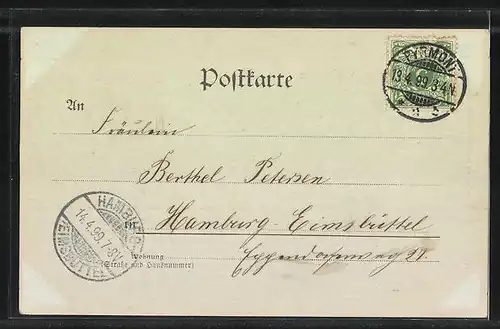 Postkarte
PYRMONT
13.4.99.3-4N.
An
Fräulein
Berthel Petersen
Hamburg-Eimsbüttel
HAMBURG
14.4.99.7-8V.
EIMSBÜTTEL
Wohnung
(Straße und Hausnummer)
Eppendorferweg